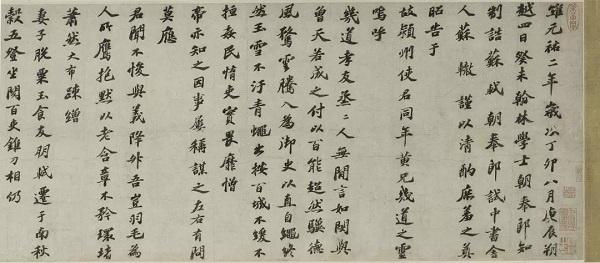 維元祐二年歲次丁卯八月庚辰朔
越四日癸未翰林學士朝奉郎知
制誥蘇軾朝奉郎試中書舍
人蘇轍謹以清酌庶羞之奠
昭告于
故潁州使君同年黃兄幾道之靈
嗚呼
幾道孝友烝二人無間言如閔與
曾天若成之付以百能超然驥德
風騖雲騰入為御史以直自繩終
然玉雪不汙青蠅出按百城不緩不
縆姦民惰吏實畏靡憎
帝亦知之因事屢稱謀之左右有問
莫應
君聞不悛與義降升吾豈羽毛為
人所鷹抱默以老含章不矜環堵
蕭然大布疎繒
妻子脫粟玉食友朋軾遷于南秋
穀五登坐閱百吏錐刀相仍